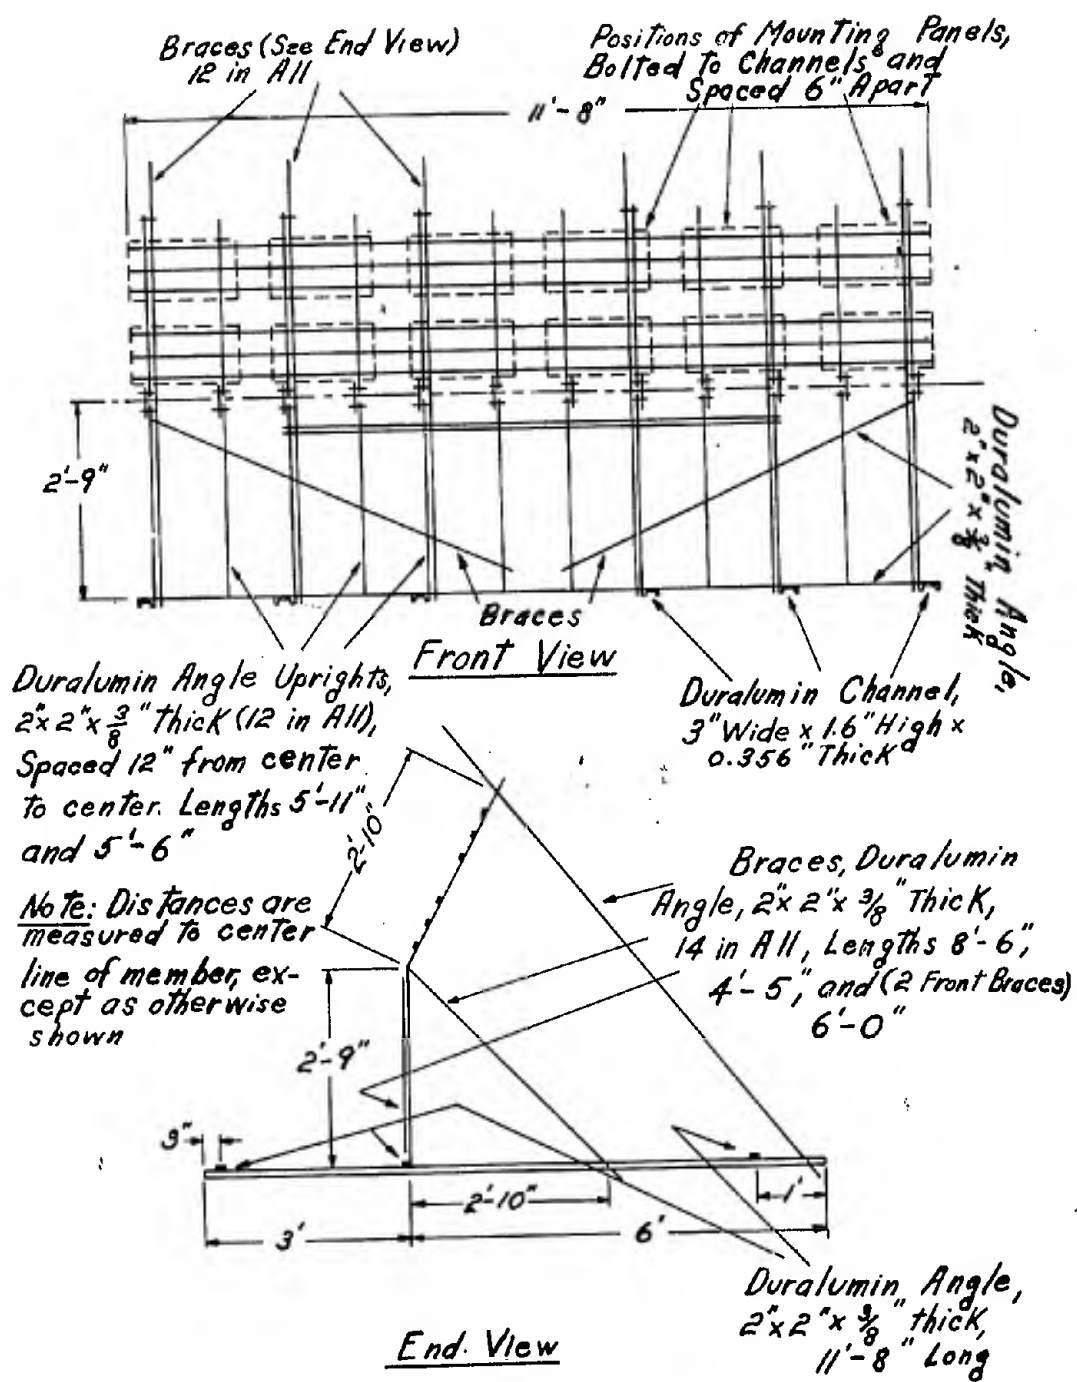 Braces (See End View)
12 in All
Positions of Mounting Panels,
Bolted To Channels and
Spaced 6" Apart
11'-8"
2'-9"
Duralumin Angle,
2" x 2" x 3/8" Thick
Braces
Front View
Duralumin Angle Uprights,
2"x 2"x 3/8" Thick (12 in All),
Spaced 12" from center
to center. Lengths 5'-11"
and 5'-6"
Duralumin Channel,
3" Wide x 1.6" High x
0.356" Thick
Note: Distances are
measured to center
line of member, ex-
cept as otherwise
shown
2'-10"
Braces, Duralumin
Angle, 2"x 2"x 3/8" Thick,
14 in All, Lengths 8'-6",
4'-5", and (2 Front Braces)
6'-0"
2'-9"
3"
2'-10"
1'
3'
6'
Duralumin Angle,
2"x 2"x 3/8" thick,
11'-8" Long
End View